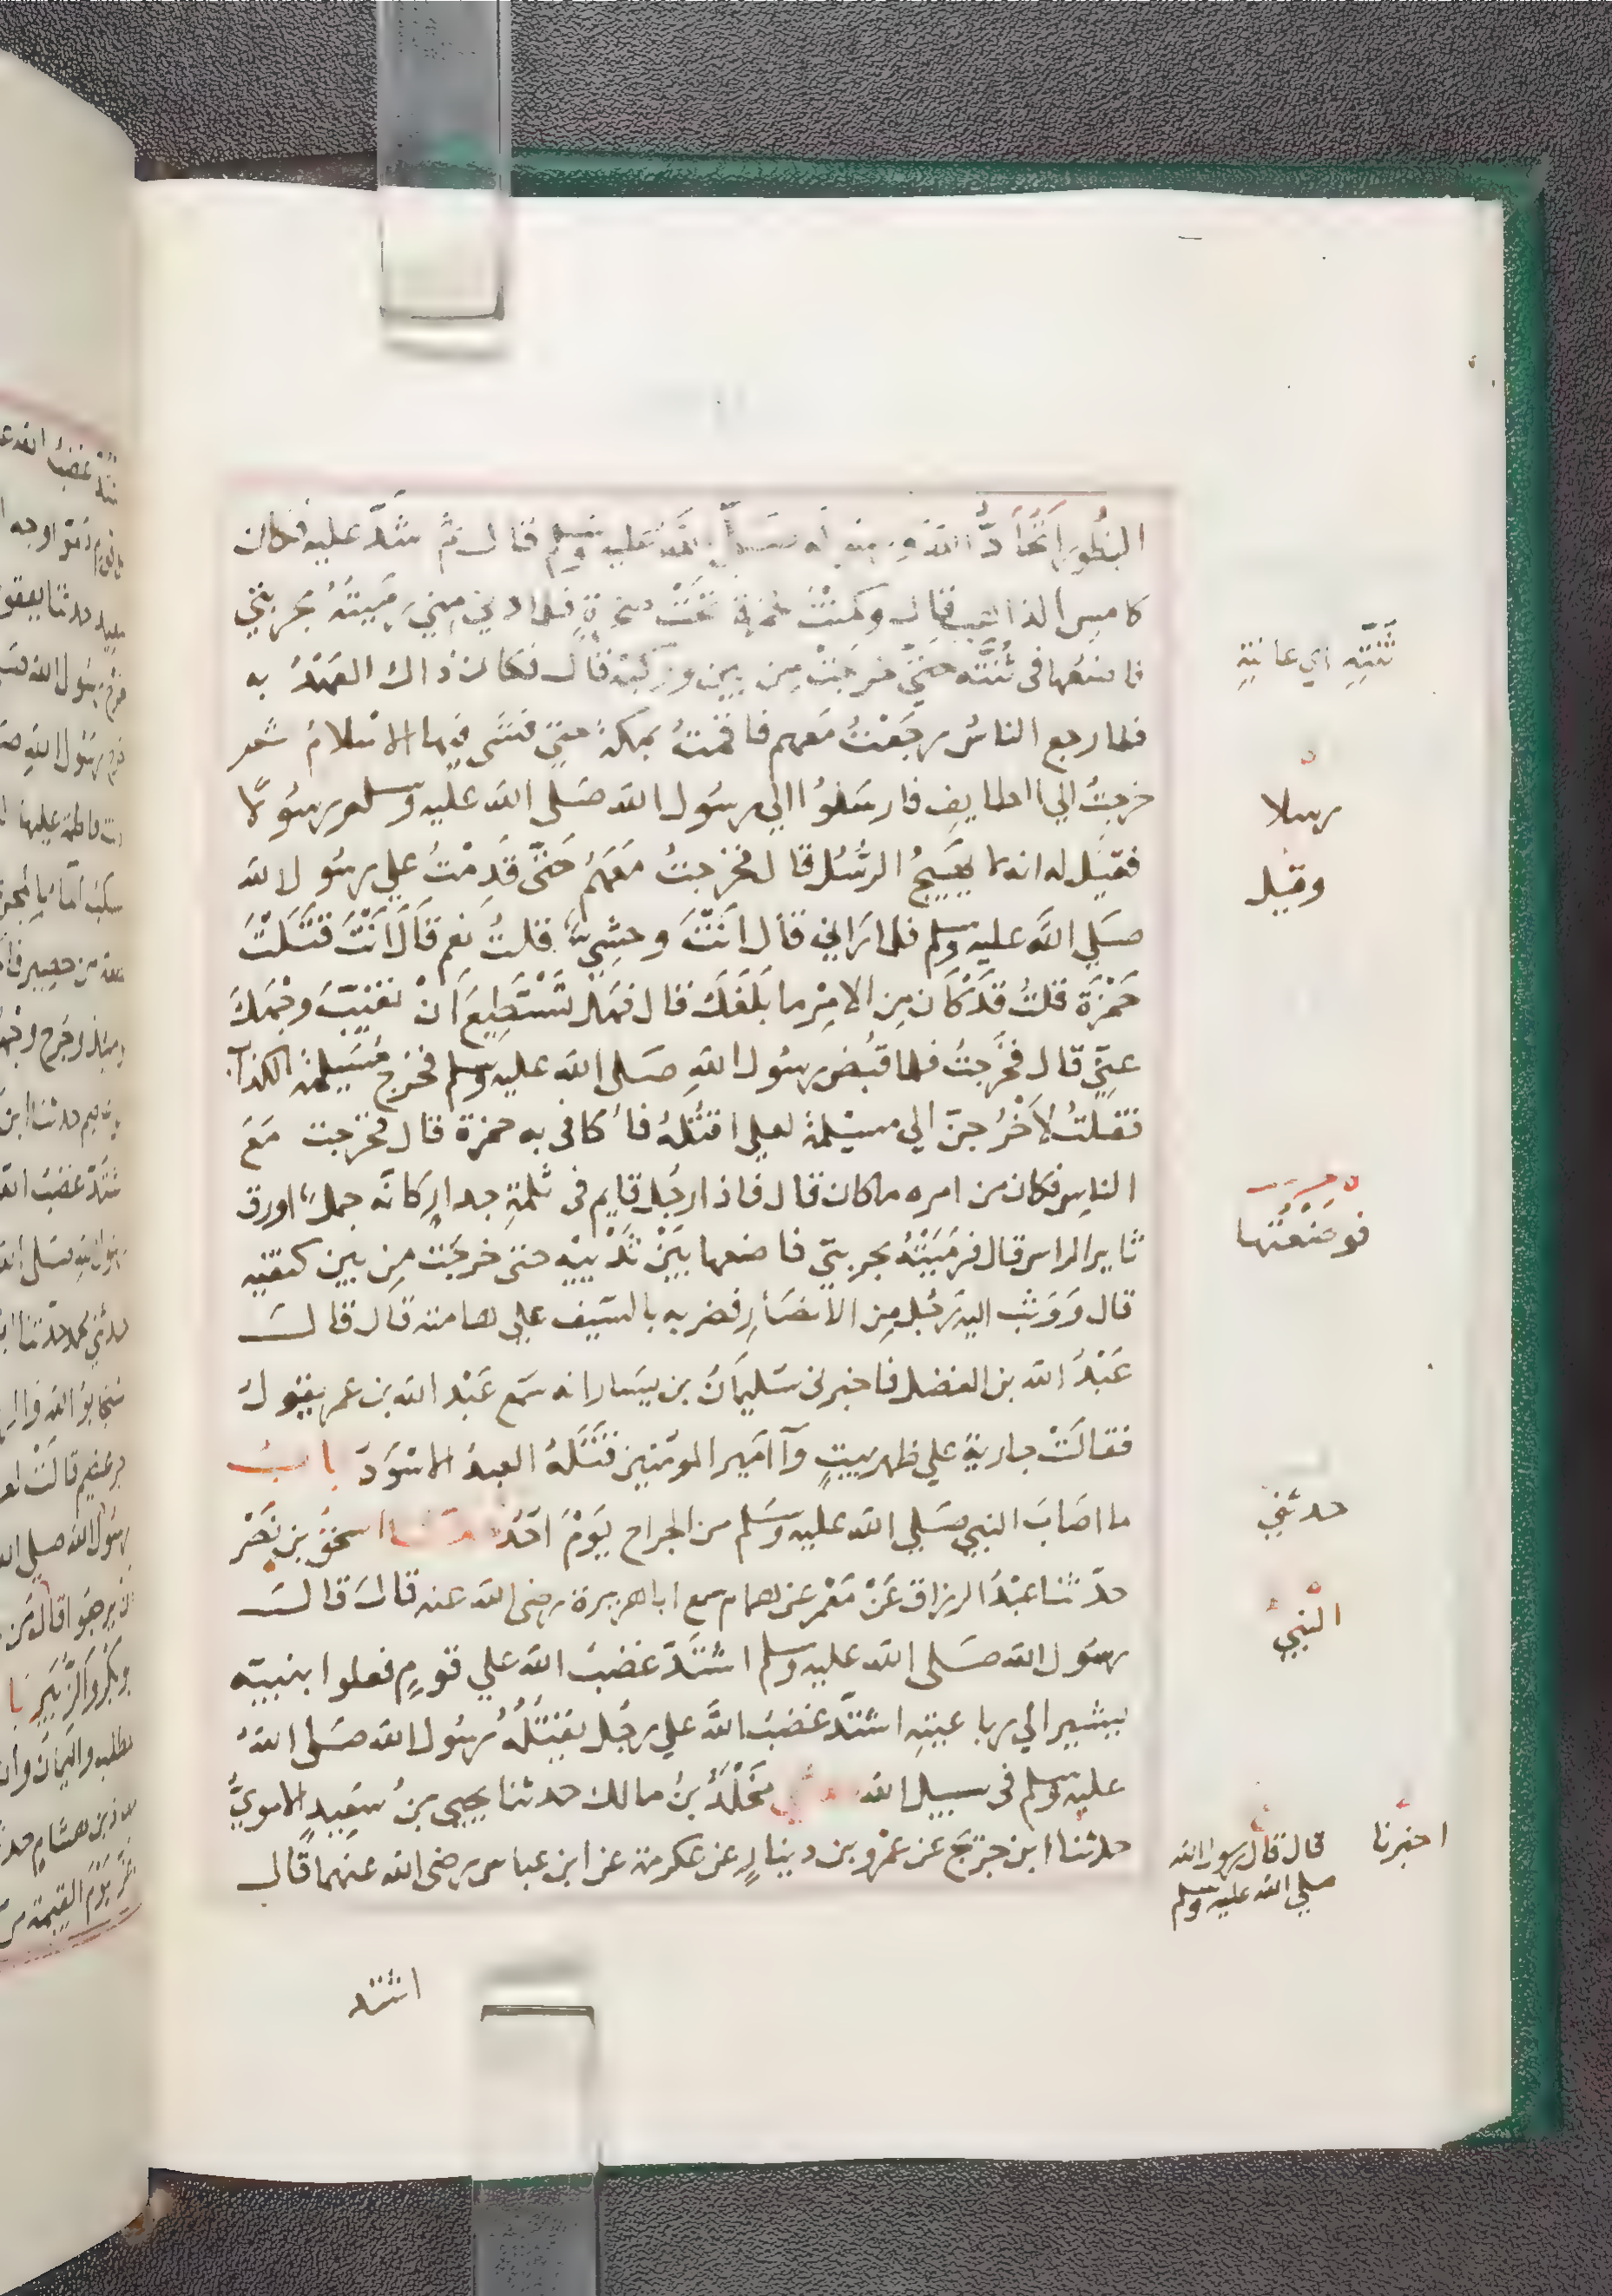 البظور اتحاد الله ورسوله صلى الله عليه وسلم قال ثم شد عليه فكان
كامس الذاهب قال وكمنت لحمزة تحت صخرة فلما دني مني رميته بحربتي
فاضعها في ثنته حتي خرجت من بين وركيه قال فكان ذاك العهد به
فلما رجع الناس رجعت معهم فاقمت بمكة حتي فشى فيها الاسلام ثم
خرجت الي الطايف فارسلوا الي رسول الله صلى الله عليه وسلم رسولا
فقيل له انه لا يهيج الرسل قال فخرجت معهم حتى قدمت علي رسول الله
صلي الله عليه وسلم فلما راني قال انت وحشي قلت نعم قال انت قتلت
حمزة قلت قد كان من الامر ما بلغك قال فهل تستطيع ان تغيب وجهك
عني قال فخرجت فلما قبض رسول الله صلى الله عليه وسلم فخرج مسيلمة الكذاب
فقلت لاخرجن الي مسيلمة لعلي اقتله فأكافى به حمزة قال فخرجت مع
الناس فكان من امره ما كان قال فاذا رجل قايم في ثلمة جدار كانه جمل اورق
ثاير الراس قال فرميته بحربتي فاضعها بين ثدييه حتى خرجت من بين كتفيه
قال ووثب اليه رجل من الانصار فضربه بالسيف علي هامته قال قال
عبد الله بن الفضل فاخبرني سليمان بن يسار انه سمع عبد الله بن عمر يقول
فقالت جارية علي ظهر بيت وآ امير المومنين قتله العبد الاسود باب
ما اصاب النبي صلي الله عليه وسلم من الجراح يوم احد حدثنا اسحق بن نصر
حدثنا عبد الرزاق عن معمر عن همام سمع ابا هريرة رضى الله عنه قال قال
رسول الله صلى الله عليه وسلم اشتد غضب الله علي قوم فعلوا بنبيه
يشير الي رباعيته اشتد غضب الله علي رجل يقتله رسول الله صلى الله
عليه وسلم في سبيل الله حدثني مخلد بن مالك حدثنا يحيى بن سعيد الاموي
حدثنا ابن جريج عن عمرو بن دينار عن عكرمة عن ابن عباس رضى الله عنهما قال
اشتد
ثنته اي عانته
رسلا
وقيل
فوضعتها
حدثني
النبي
اخبرنا
قال قال رسول الله
صلي الله عليه وسلم